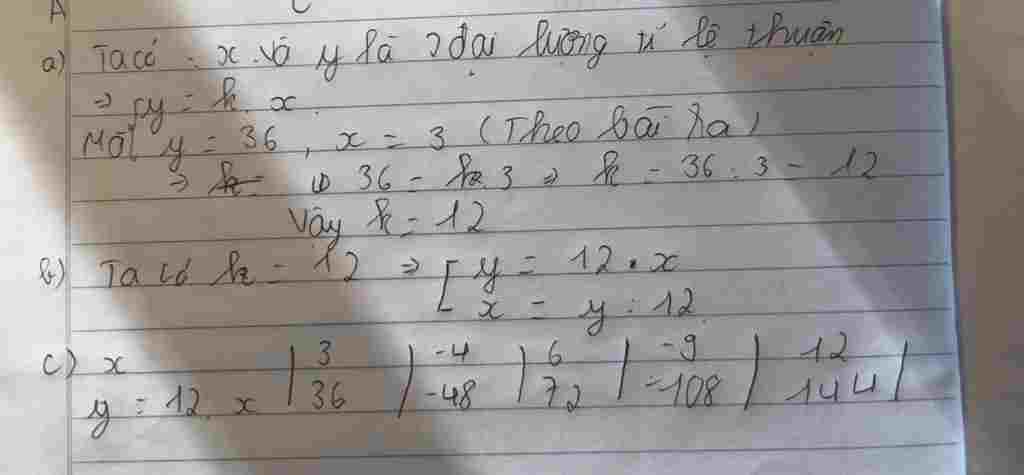 A C
a) Ta có : x và y là 2 đại lượng tỉ lệ thuận
⇒ y = k . x
Mà y = 36 , x = 3 (Theo bài ra)
⇒ 36 = k . 3 ⇒ k = 36 : 3 = 12
Vậy k = 12
b) Ta có k = 12 ⇒ [ y = 12 . x
x = y : 12
c) x | 3 | -4 | 6 | -9 | 12
y = 12 . x | 36 | -48 | 72 | -108 | 144 |